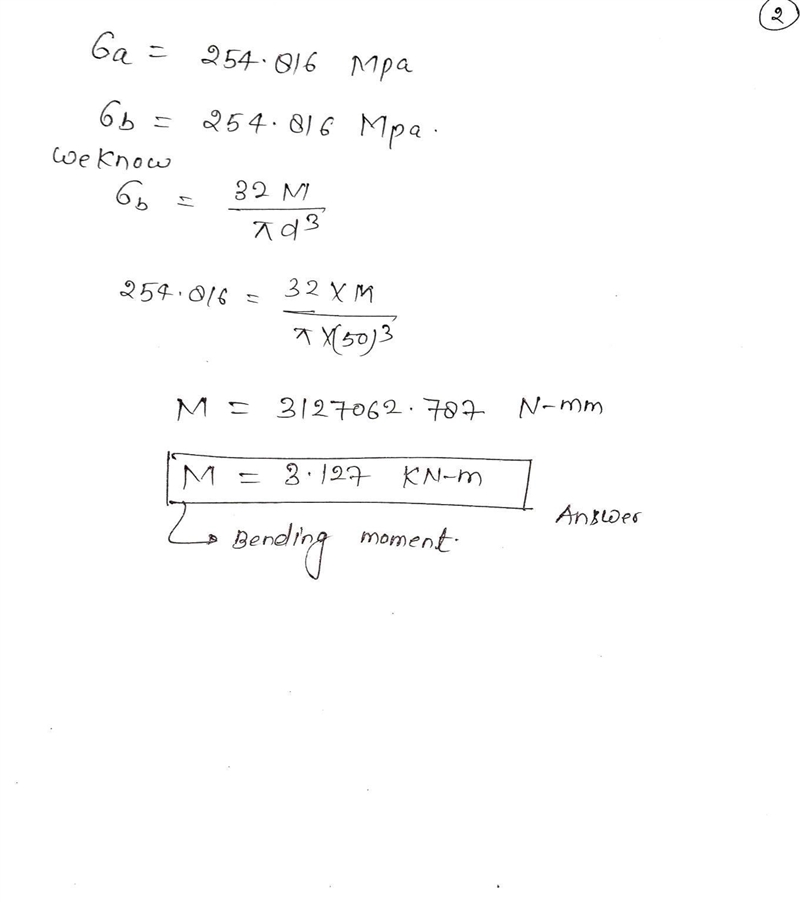 2
σa = 254.816 Mpa
σb = 254.816 Mpa.
We Know
σb = 32 M / πd³
254.816 = 32 × M / π × (50)³
M = 3127062.787 N-mm
M = 3.127 KN-m
Answer
↳ Bending moment.